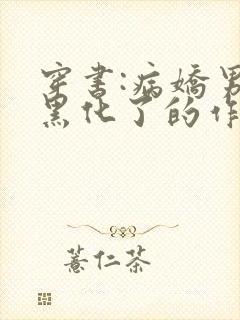 穿书:病娇男
黑化了的作
薏仁茶